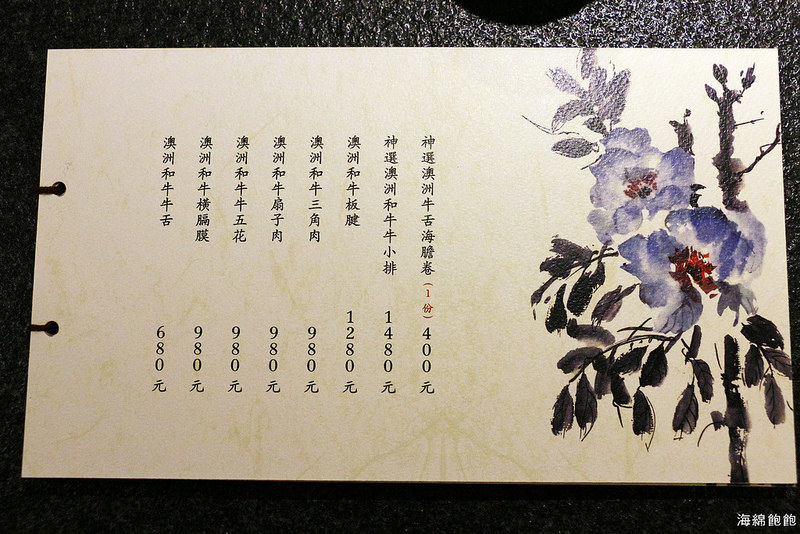 神選澳洲牛舌海膽卷(1份)400元
神選澳洲和牛牛小排1480元
澳洲和牛板腱1280元
澳洲和牛三角肉980元
澳洲和牛扇子肉980元
澳洲和牛牛五花980元
澳洲和牛橫膈膜980元
澳洲和牛牛舌680元
海綿飽飽